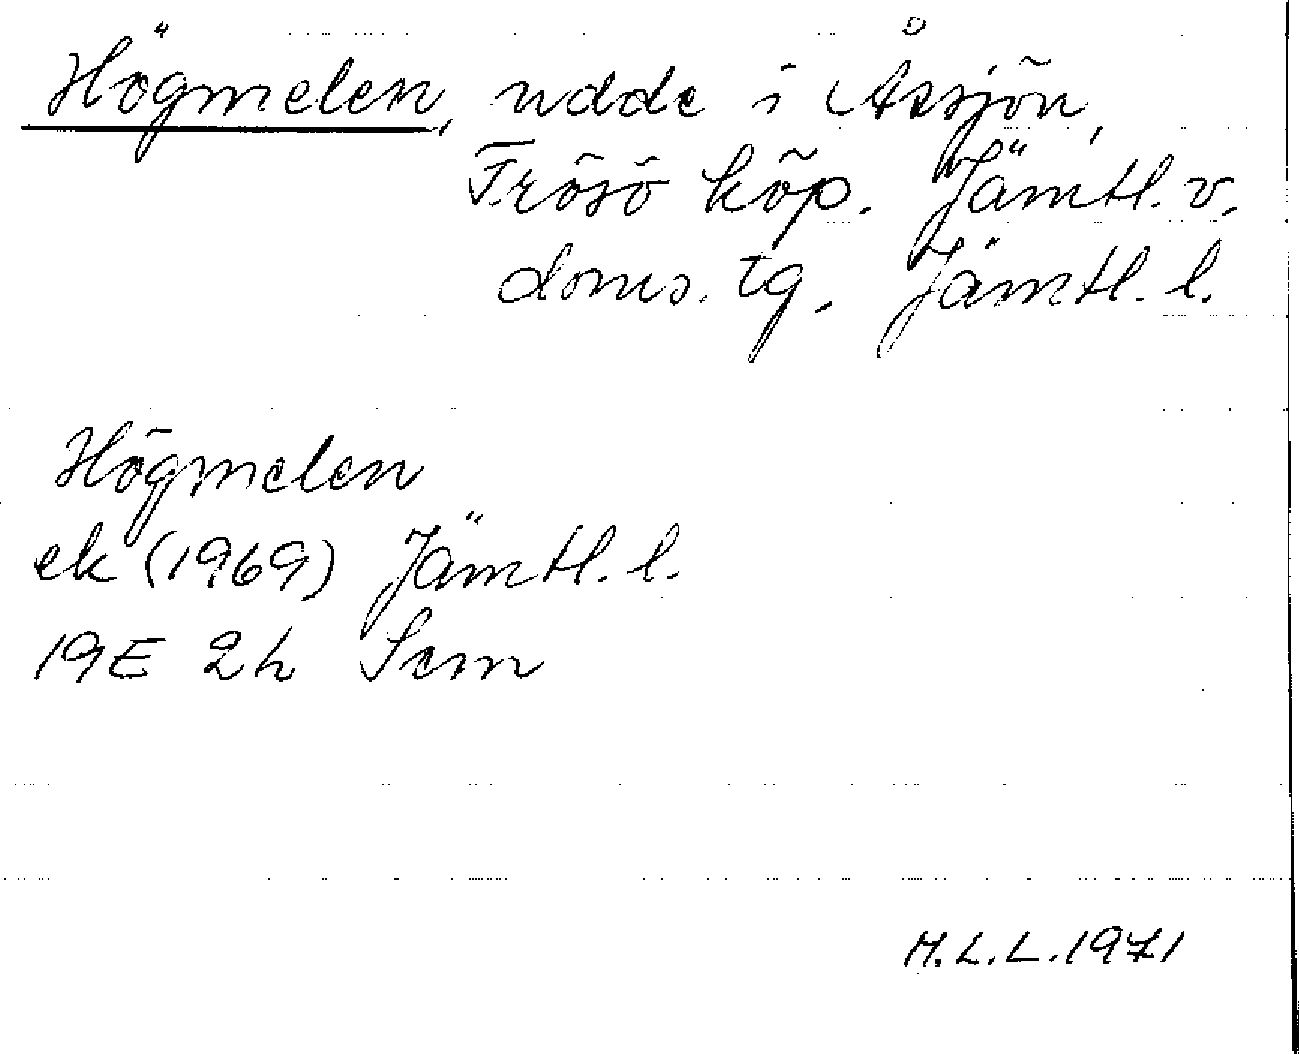 Högmelen, udde i Åssjön,
Frösö köp. Jämtl. v.
doms. tg. Jämtl. l.
Högmelen
ek (1969) Jämtl. l.
19E 2h Sem
H.L.L. 1971